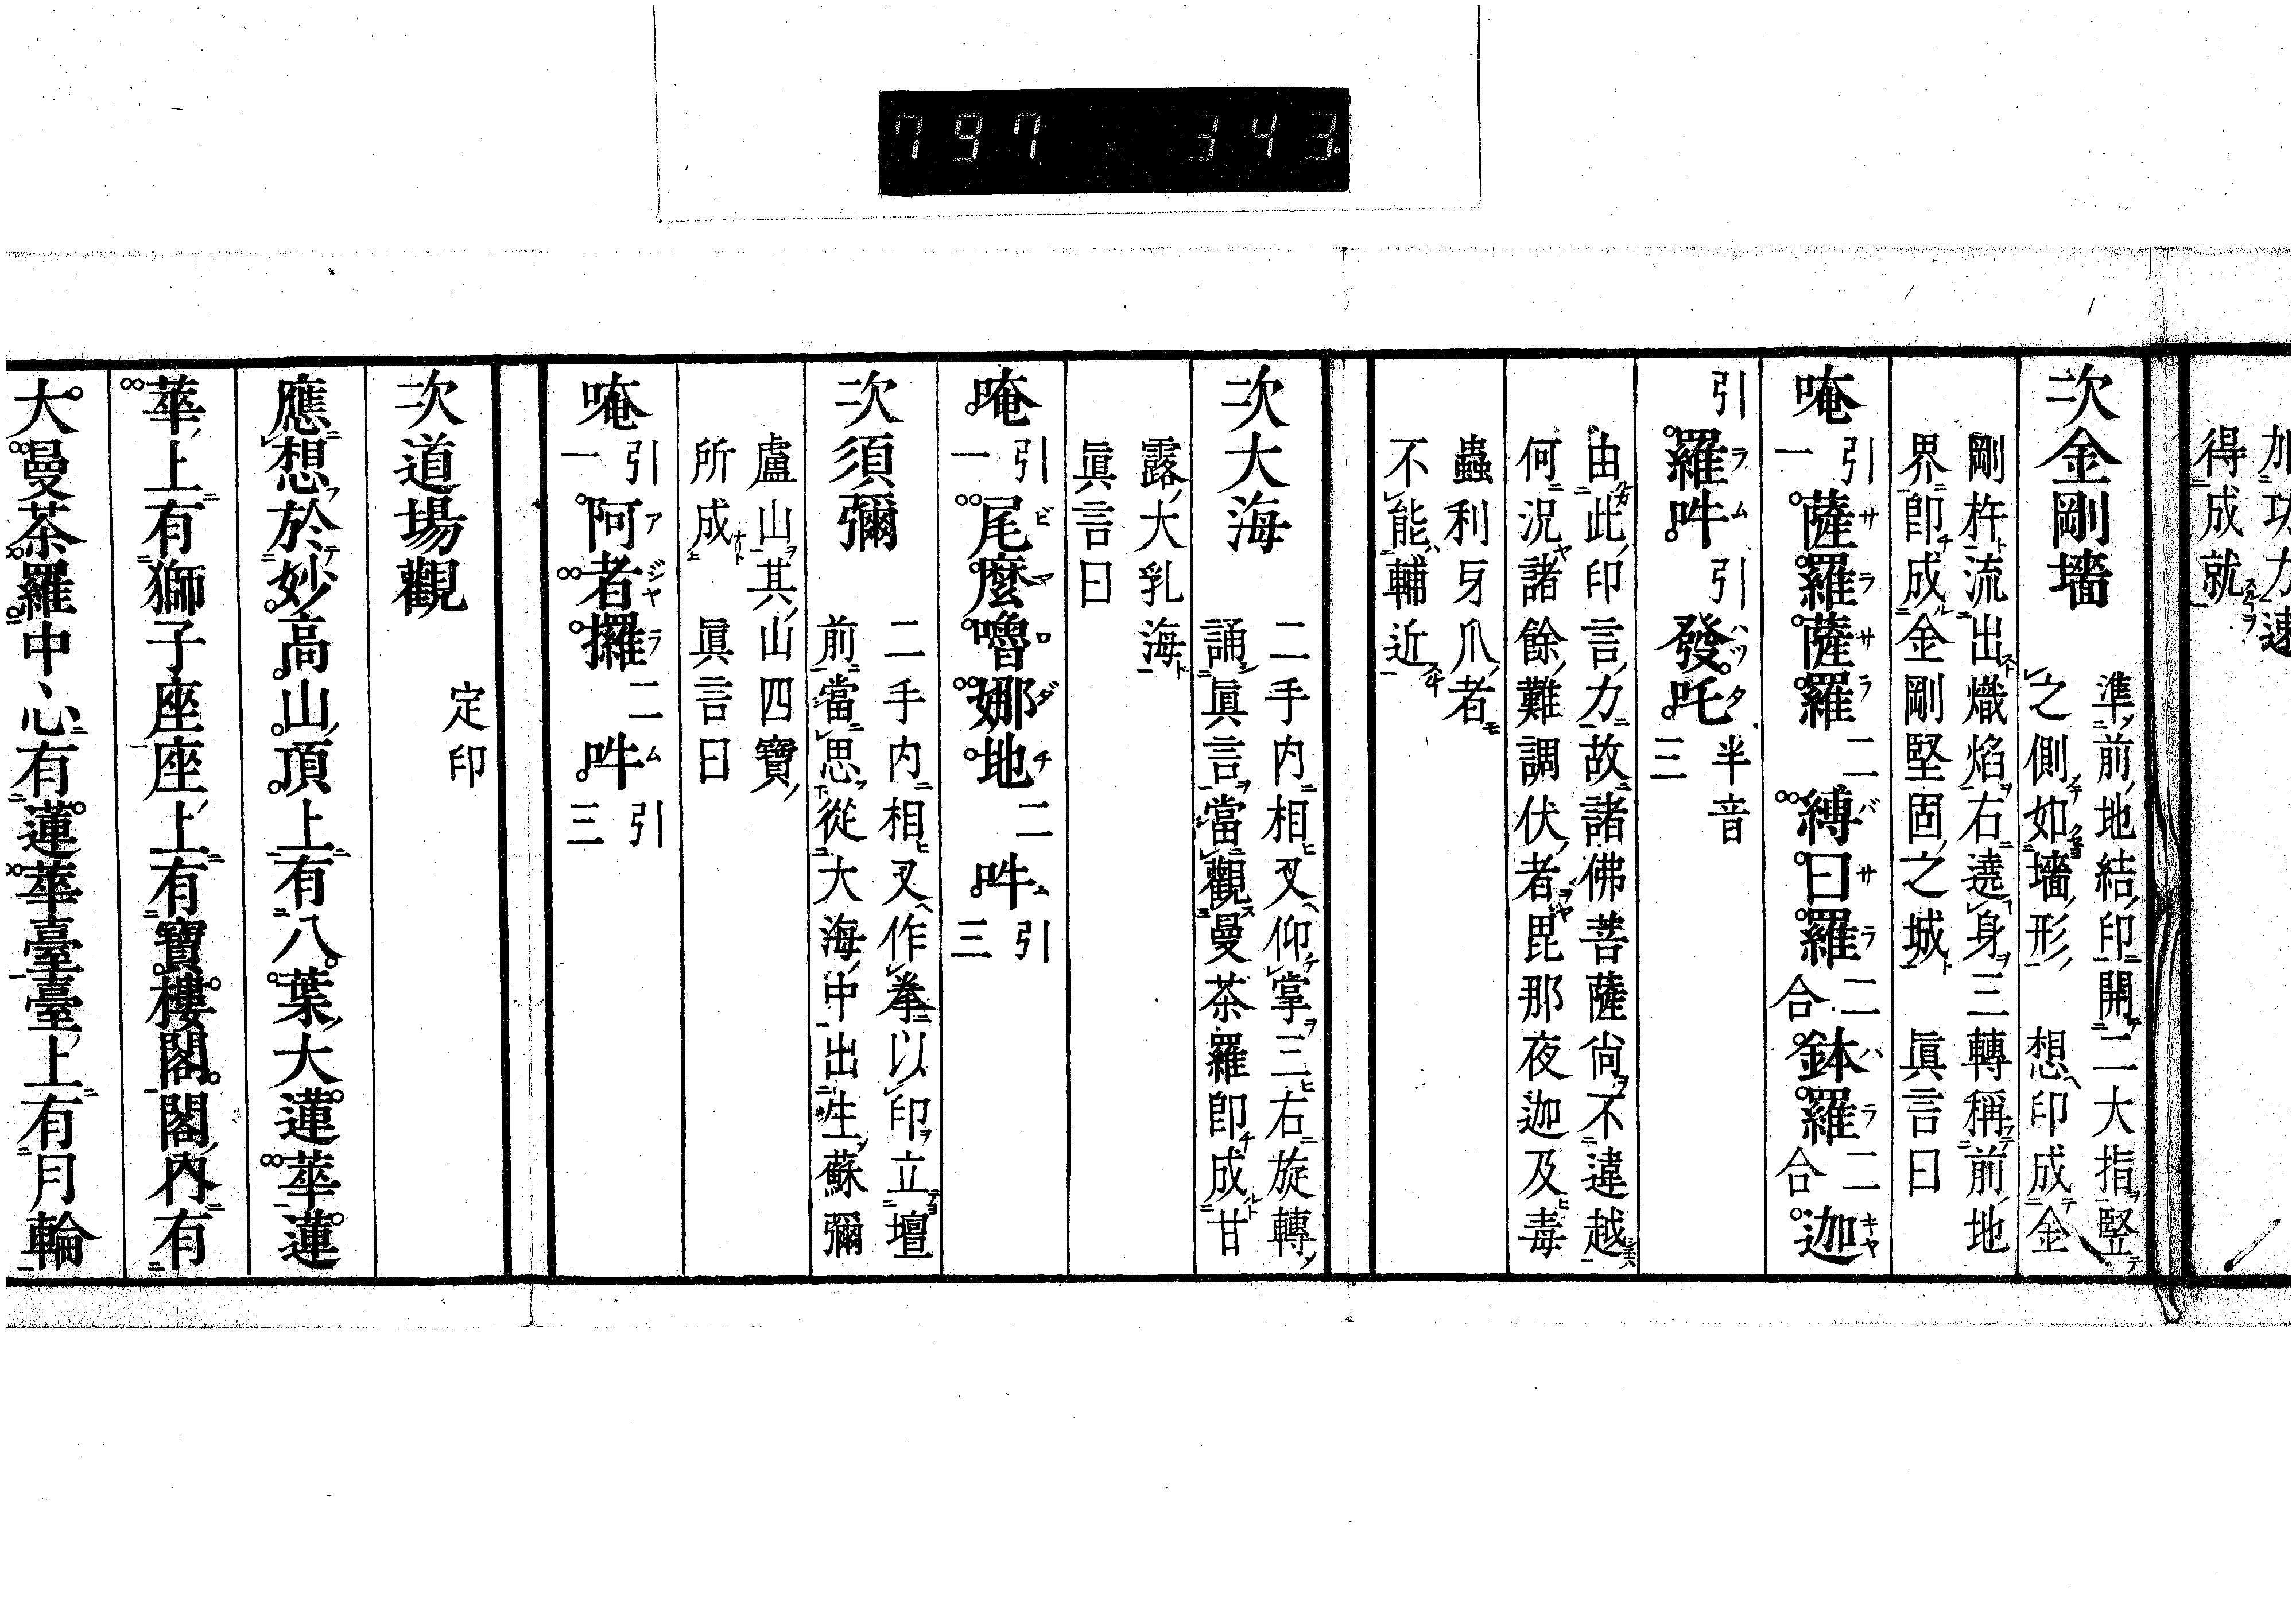 797 343
加功力速
得成就
次金剛墻
準前地結印開二大指竪
之側如墻形 想印成金
剛杵流出熾焰右遶身三轉稱前地
界即成金剛堅固之城 眞言曰
唵引一薩羅薩羅二縛曰羅二合鉢羅二合迦
引羅吽引發吒半音三
由此印言力故諸佛菩薩尚不違越
何況諸餘難調伏者毘那夜迦及毒
蟲利牙爪者
不能輔近
次大海
二手内相叉仰掌三右旋轉
誦眞言當觀曼荼羅即成甘
露大乳海
眞言曰
唵引一尾麼嚕娜地二吽引三
次須彌
二手内相叉作拳以印立壇
前當思從大海中出生蘇彌
盧山其山四寶
所成 眞言曰
唵引一阿者攞二吽引三
次道場觀 定印
應想於妙高山頂上有八葉大蓮華蓮
華上有獅子座座上有寶樓閣閣内有
大曼荼羅中心有蓮華臺臺上有月輪